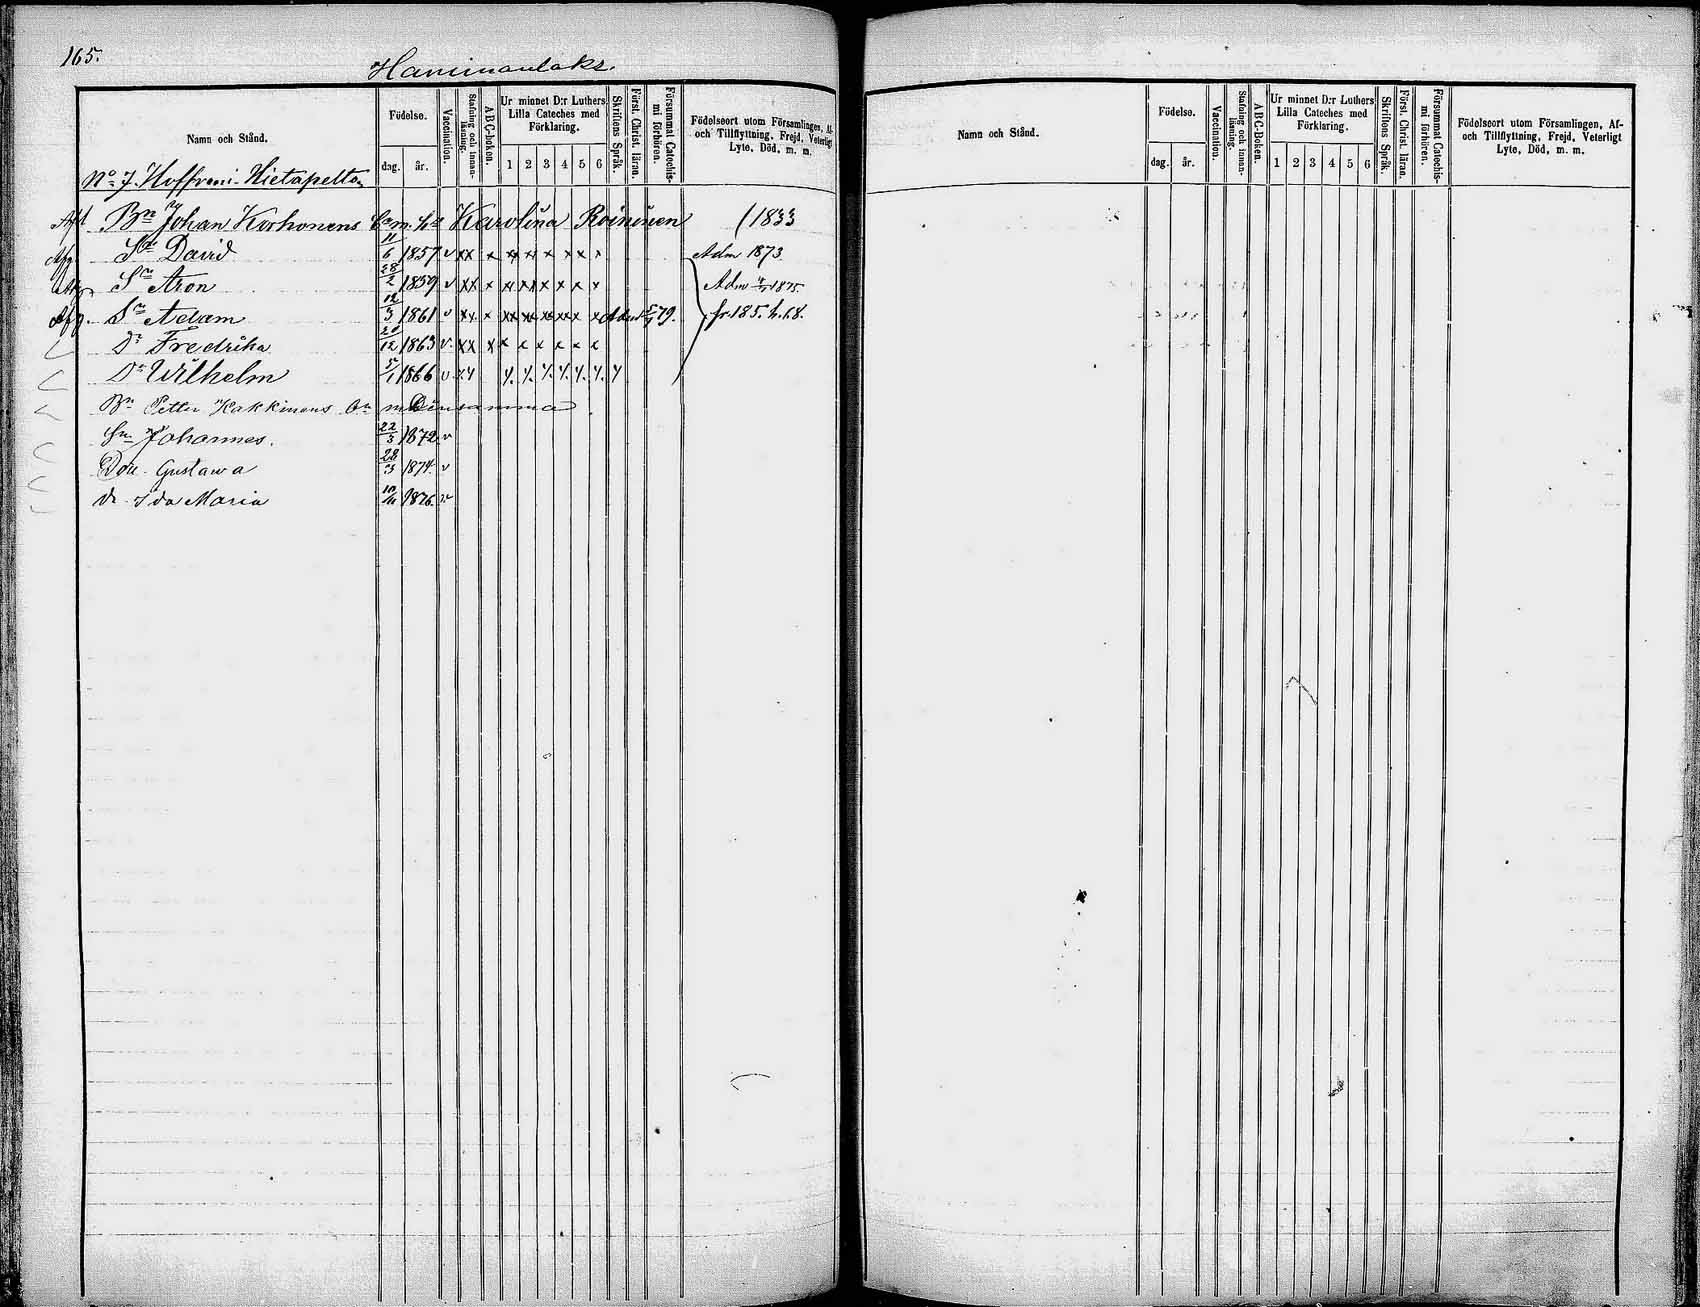 165.
Haminanlaks.
Namn och Stånd.
Födelse.
dag.
år.
Vaccination.
Stafning och innanläsning.
ABC-boken.
Ur minnet D:r Luthers Lilla Cateches med Förklaring.
1 2 3 4 5 6
Skriftens Språk.
Först. Christ. läran.
Försummat Catechismi förhören.
Födelseort utom Församlingen, Af- och Tillflyttning, Frejd, Veterligt Lyte, Död, m. m.
No 7. Hoffreni-Hietapelto
Bn Johan Korhonens Barn m. h. Karolina Roininen (1833
Afg Sn David 11/6 1857 v xx x x x x x x x Adm 1873
Sn Aron 28/2 1859 v xx x x x x x x x Adm 1875.
Afg. Sn Adam 12/3 1861 v xx x xx x x xx x x Adm 79. fr. 185. h. 68.
Dr Fredrika 20/12 1863 v. xx x x x x x x x
Dr Wilhelm 5/1 1866 v
Bn Petter Kakkinens Bn m Densamma
Sn Johannes. 22/5 1872 v
Don Gustava 28/3 1874. v
Dr Ida Maria 1876. v
Namn och Stånd.
Födelse.
dag.
år.
Vaccination.
Stafning och innanläsning.
ABC-boken.
Ur minnet D:r Luthers Lilla Cateches med Förklaring.
1 2 3 4 5 6
Skriftens Språk.
Först. Christ. läran.
Försummat Catechismi förhören.
Födelseort utom Församlingen, Af- och Tillflyttning, Frejd, Veterligt Lyte, Död, m. m.